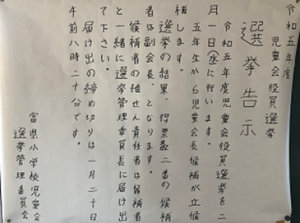 令和五年度
児童会役員選挙
選挙告示
令和五年度児童会役員選挙を二
月一日(水)に行います。
五年生から児童会長候補が立候
補します。
選挙の結果、得票数二番の候補
者は副会長、となります。
候補者の推せん責任者は候補者
と一緒に選挙管理委員長に届け出
て下さい。
届け出の締め切りは一月二十日
午前八時二十分です。
富県小学校児童会
選挙管理委員会